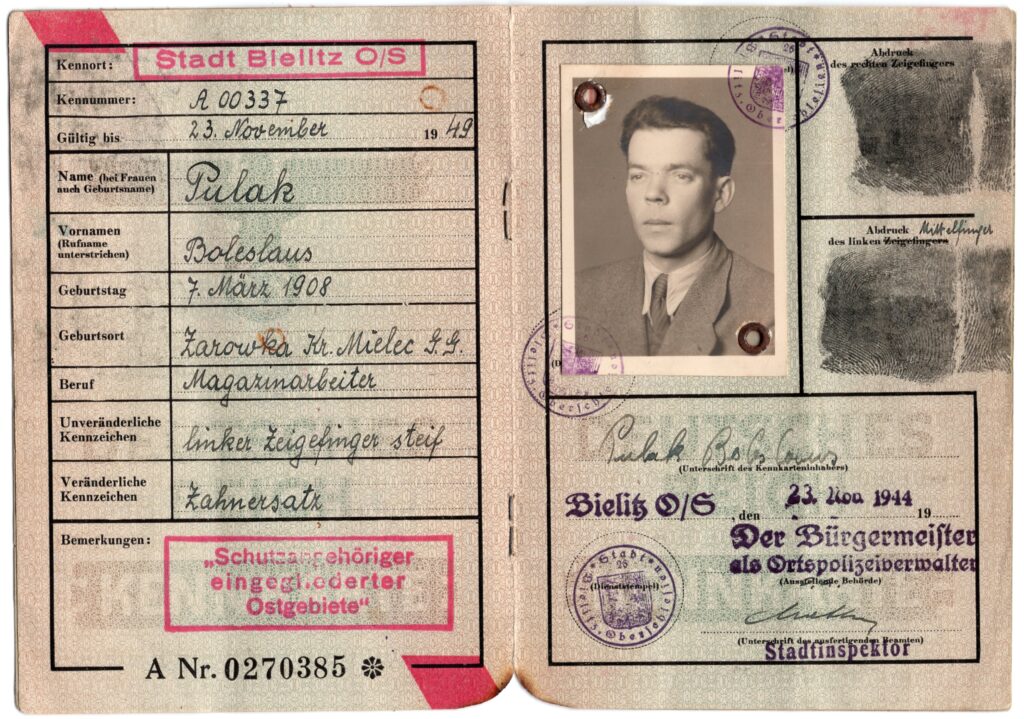 Kennort:
Stadt Bielitz O/S
Kennummer:
A 00337
Gültig bis
23. November
1949
Name (bei Frauen
auch Geburtsname)
Pulak
Vornamen
(Rufname
unterstrichen)
Boleslaus
Geburtstag
7. März 1908
Geburtsort
Zarowka Kr. Mielec G.G.
Beruf
Magazinarbeiter
Unveränderliche
Kennzeichen
linker Zeigefinger steif
Veränderliche
Kennzeichen
Zahnersatz
Bemerkungen:
„Schutzangehöriger
eingegliederter
Ostgebiete“
A Nr. 0270385
Abdruck
des rechten Zeigefingers
Abdruck Mittelfinger
des linken Zeigefingers
Pulak Boleslaus
(Unterschrift des Kennkarteninhabers)
Bielitz O/S, den 23. Nov 1944 19
Der Bürgermeister
als Ortspolizeiverwalter
(Ausstellende Behörde)
(Dienststempel)
(Unterschrift des ausfertigenden Beamten)
Stadtinspektor